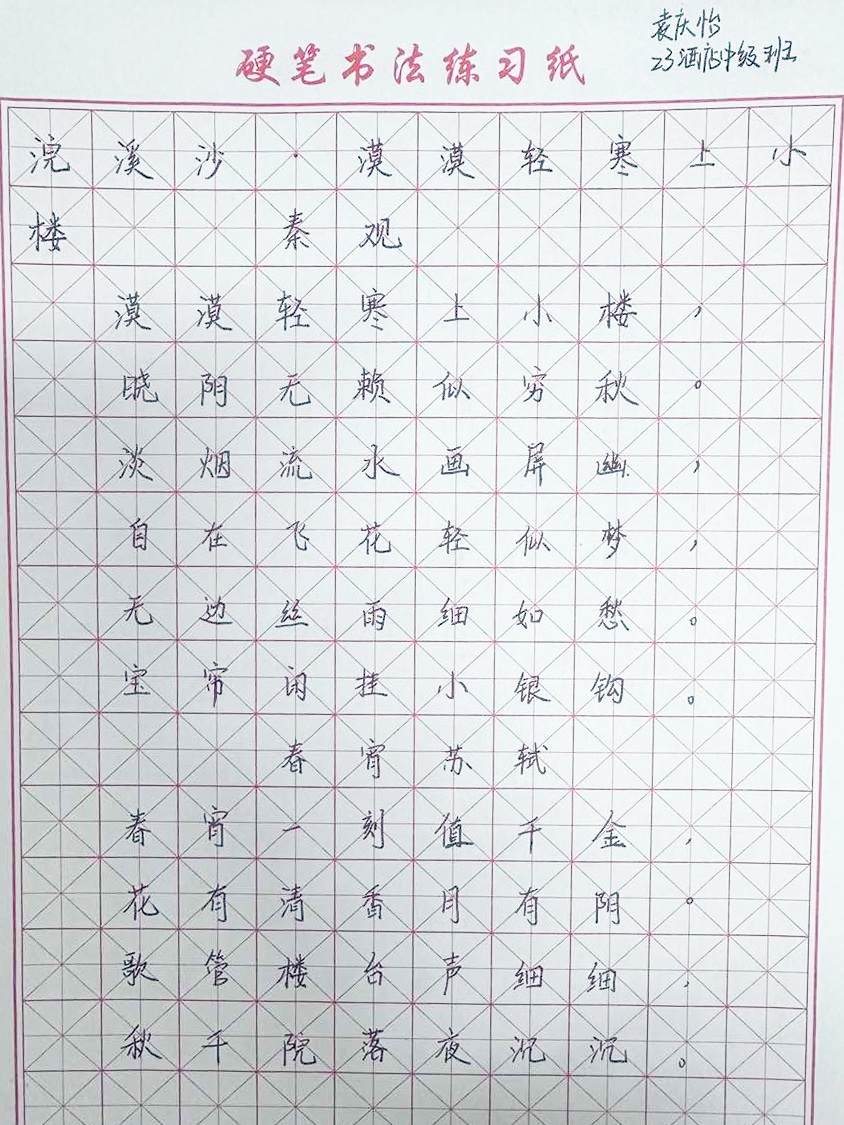 袁庆怡
23酒店中级班
硬笔书法练习纸
浣溪沙·漠漠轻寒上小
楼 秦观
漠漠轻寒上小楼，
晓阴无赖似穷秋。
淡烟流水画屏幽，
自在飞花轻似梦，
无边丝雨细如愁。
宝帘闲挂小银钩。
春宵 苏轼
春宵一刻值千金，
花有清香月有阴。
歌管楼台声细细，
秋千院落夜沉沉。